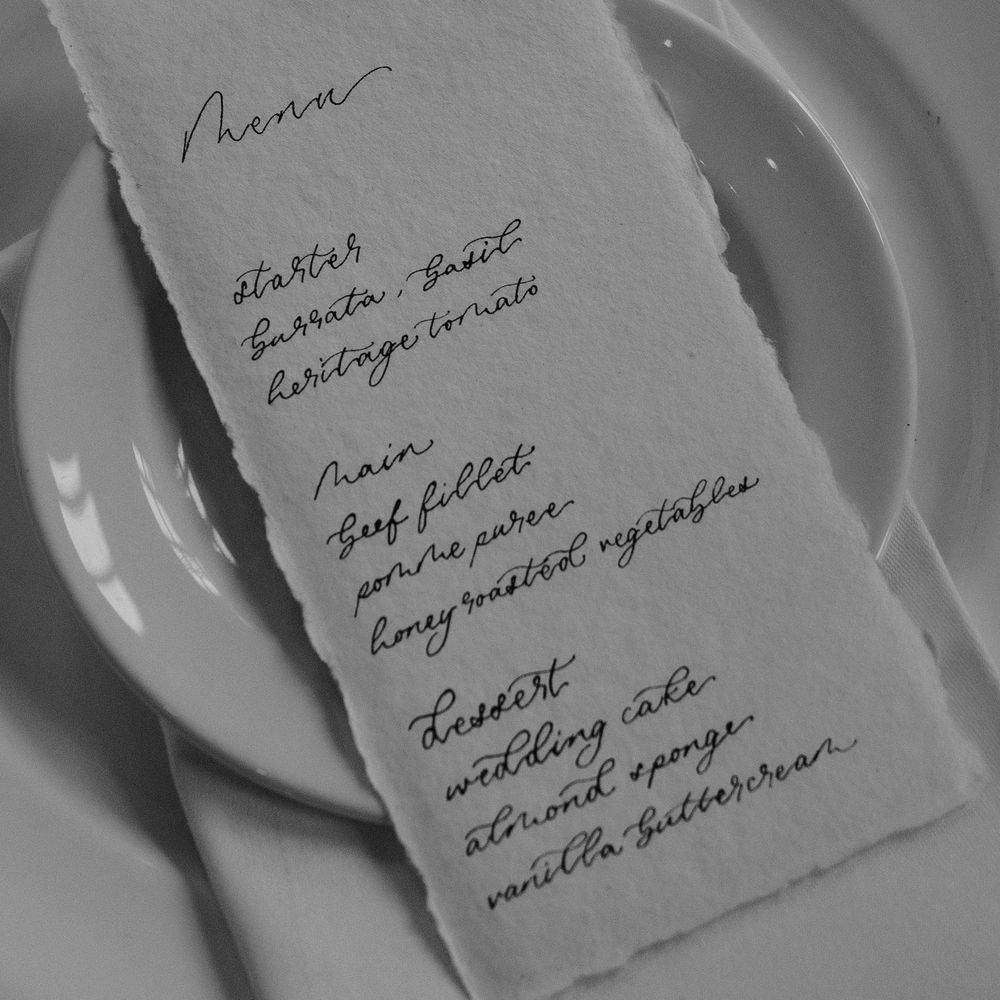 Menu
starter
burrata, basil
heritage tomato
main
beef fillet
pomme puree
honey roasted vegetables
dessert
wedding cake
almond sponge
vanilla buttercream